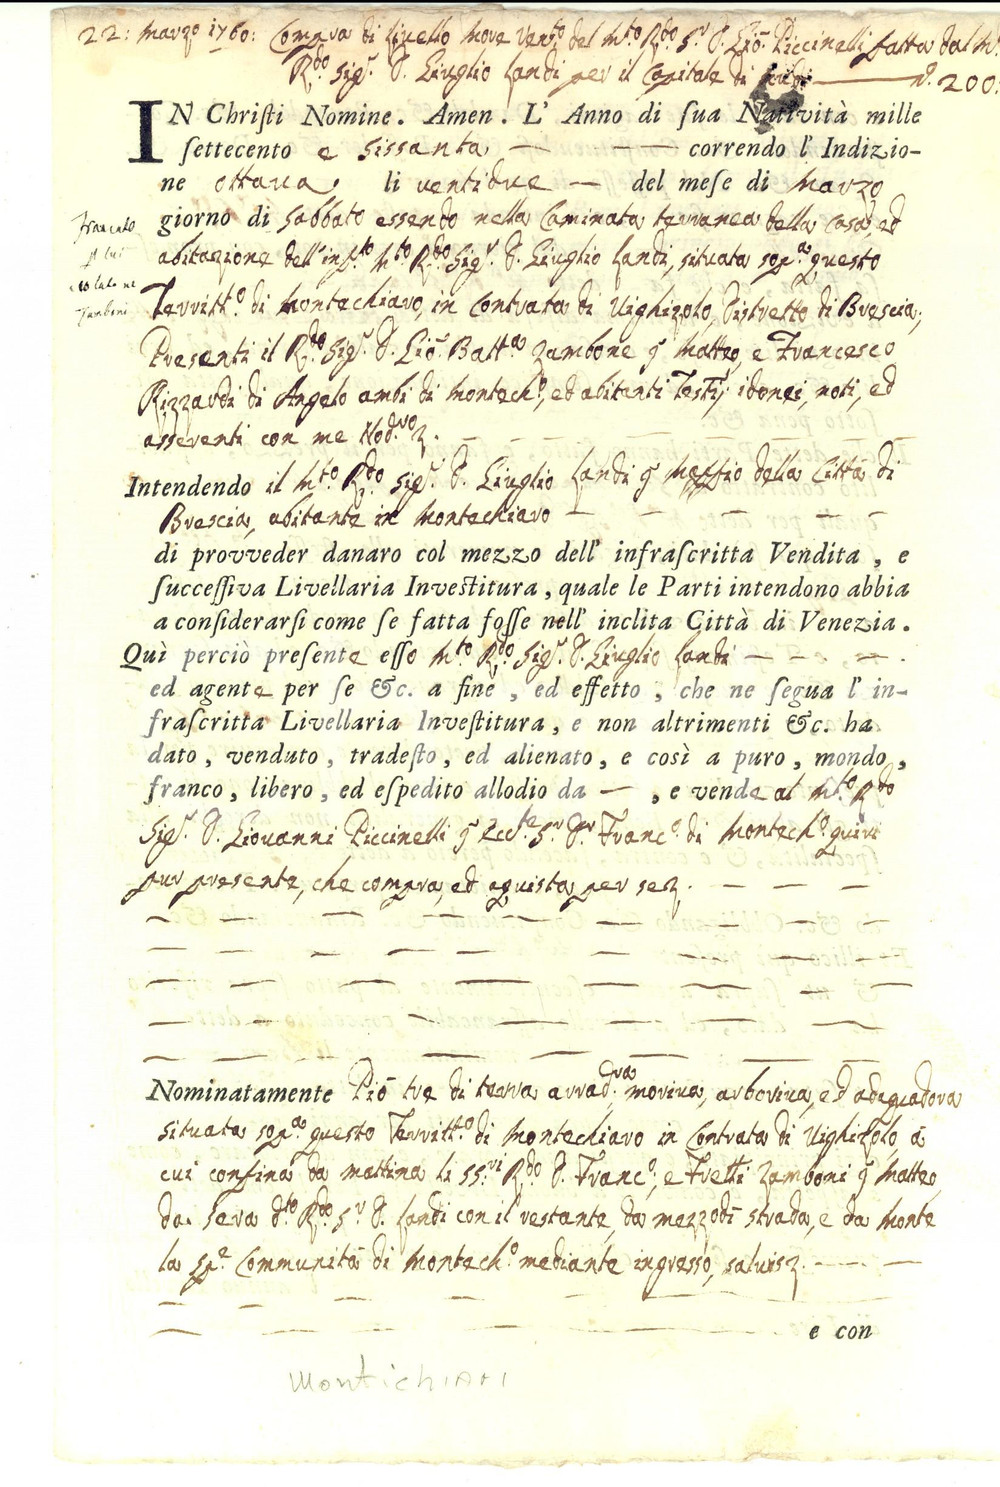 22: Marzo 1760: Compra di Livello More Ven.to del M.to R.do S.r D. Gio: Piccinelli fatta dal M.to
R.do Sig.r D. Giuglio Landi per il Capitale di Scudi —— n.o 200:
IN Chriſti Nomine. Amen. L' Anno di ſua Natività mille
ſettecento e Sissanta — — correndo l' Indizio-
ne ottava. li ventidue — del meſe di Marzo
giorno di Sabbato essendo nella Caminata terranea della casa, ed
abitazione dell'inf.to M.to R.do Sig.r D. Giuglio Landi, situata sop.a questo
Territt.o di Montechiaro, in Contrata di Vighizolo, Distretto di Brescia;
Presenti il R.do Sig.r D. Gio: Batt.a Zambone q Matteo, e Francesco
Rizzardi di Angelo ambi di Montech.o, ed abitanti Testj, idonei, noti, ed
asserenti con me Nod.ro &.
Intendendo il M.to R.do Sig.r D. Giuglio Landi q Maffio della Città di
Brescia, abitante in Montechiaro — — — —
di provveder danaro col mezzo dell' infraſcritta Vendita, e
ſucceſſiva Livellaria Inveſtitura, quale le Parti intendono abbia
a conſiderarſi come ſe fatta foſſe nell' inclita Città di Venezia.
Quì perciò preſente eſſo M.to R.do Sig.r D. Giuglio Landi — — —
ed agente per ſe &c. a fine, ed effetto, che ne ſegua l' in-
fraſcritta Livellaria Inveſtitura, e non altrimenti &c. ha
dato, venduto, tradeſto, ed alienato, e così a puro, mondo,
franco, libero, ed eſpedito allodio da — , e vende al M.to R.do
Sig.r D. Giovanni Piccinelli q Ecc.te S.r D.r Franc.o di Montech.o quivi
pur presente, che compra, ed aquista per se &. — — —
Nominatamente Piò tre di terra arrad.va moriva, arboriva, ed adaquadora
situata sop.a questo Territt.o di Montechiaro in Contrata di Vighizolo, à
cui confina da mattina li SS.ri R.do D. Franc.o, e Frelli Zamboni q Matteo,
da Sera d.to R.do S.r D. Landi con il restante, da mezzodì strada, e da Monte
la Sp.e Communità di Montech.o mediante ingresso, salvis &. — —
e con
Montichiari